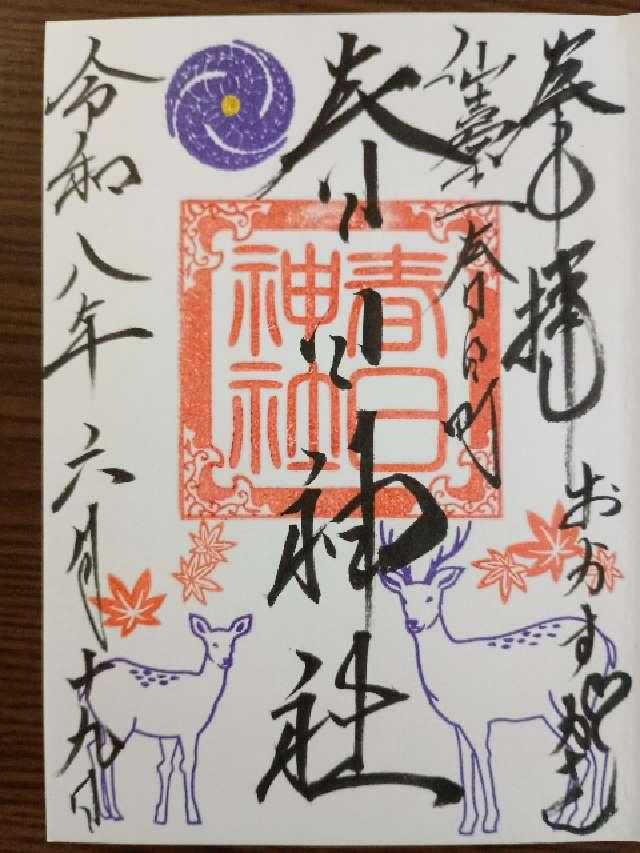 奉拝 おかすがさま
仙臺 春日町
春日神社
春日
神社
令和八年六月十九日